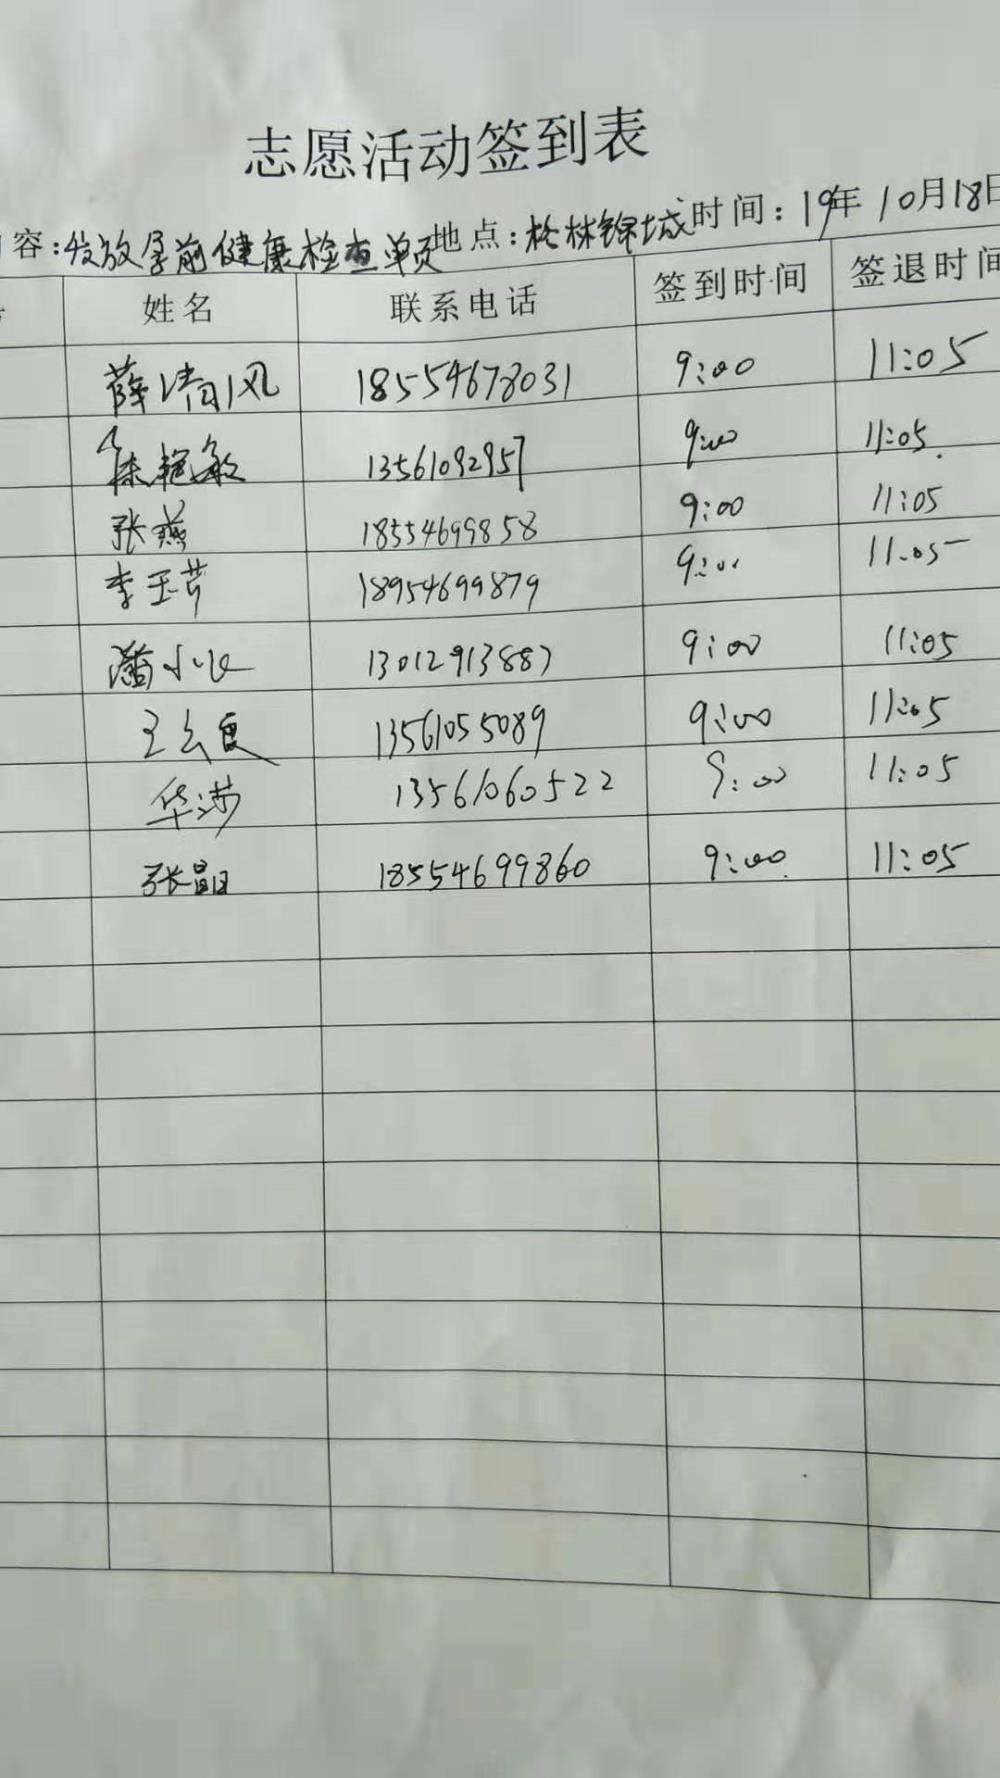 志愿活动签到表
容:发放孕前健康检查单页 地点:松林锦城 时间:19年10月18日
姓名 联系电话 签到时间 签退时间
薛清风 18554678031 9:00 11:05
陈艳敏 13561092957 9:00 11:05
张燕 18554699858 9:00 11:05
李玉芹 18954699879 9:00 11:05
潘小 13012913887 9:00 11:05
王 13561055089 9:00 11:05
华涛 13561060522 9:00 11:05
张 18554699860 9:00 11:05